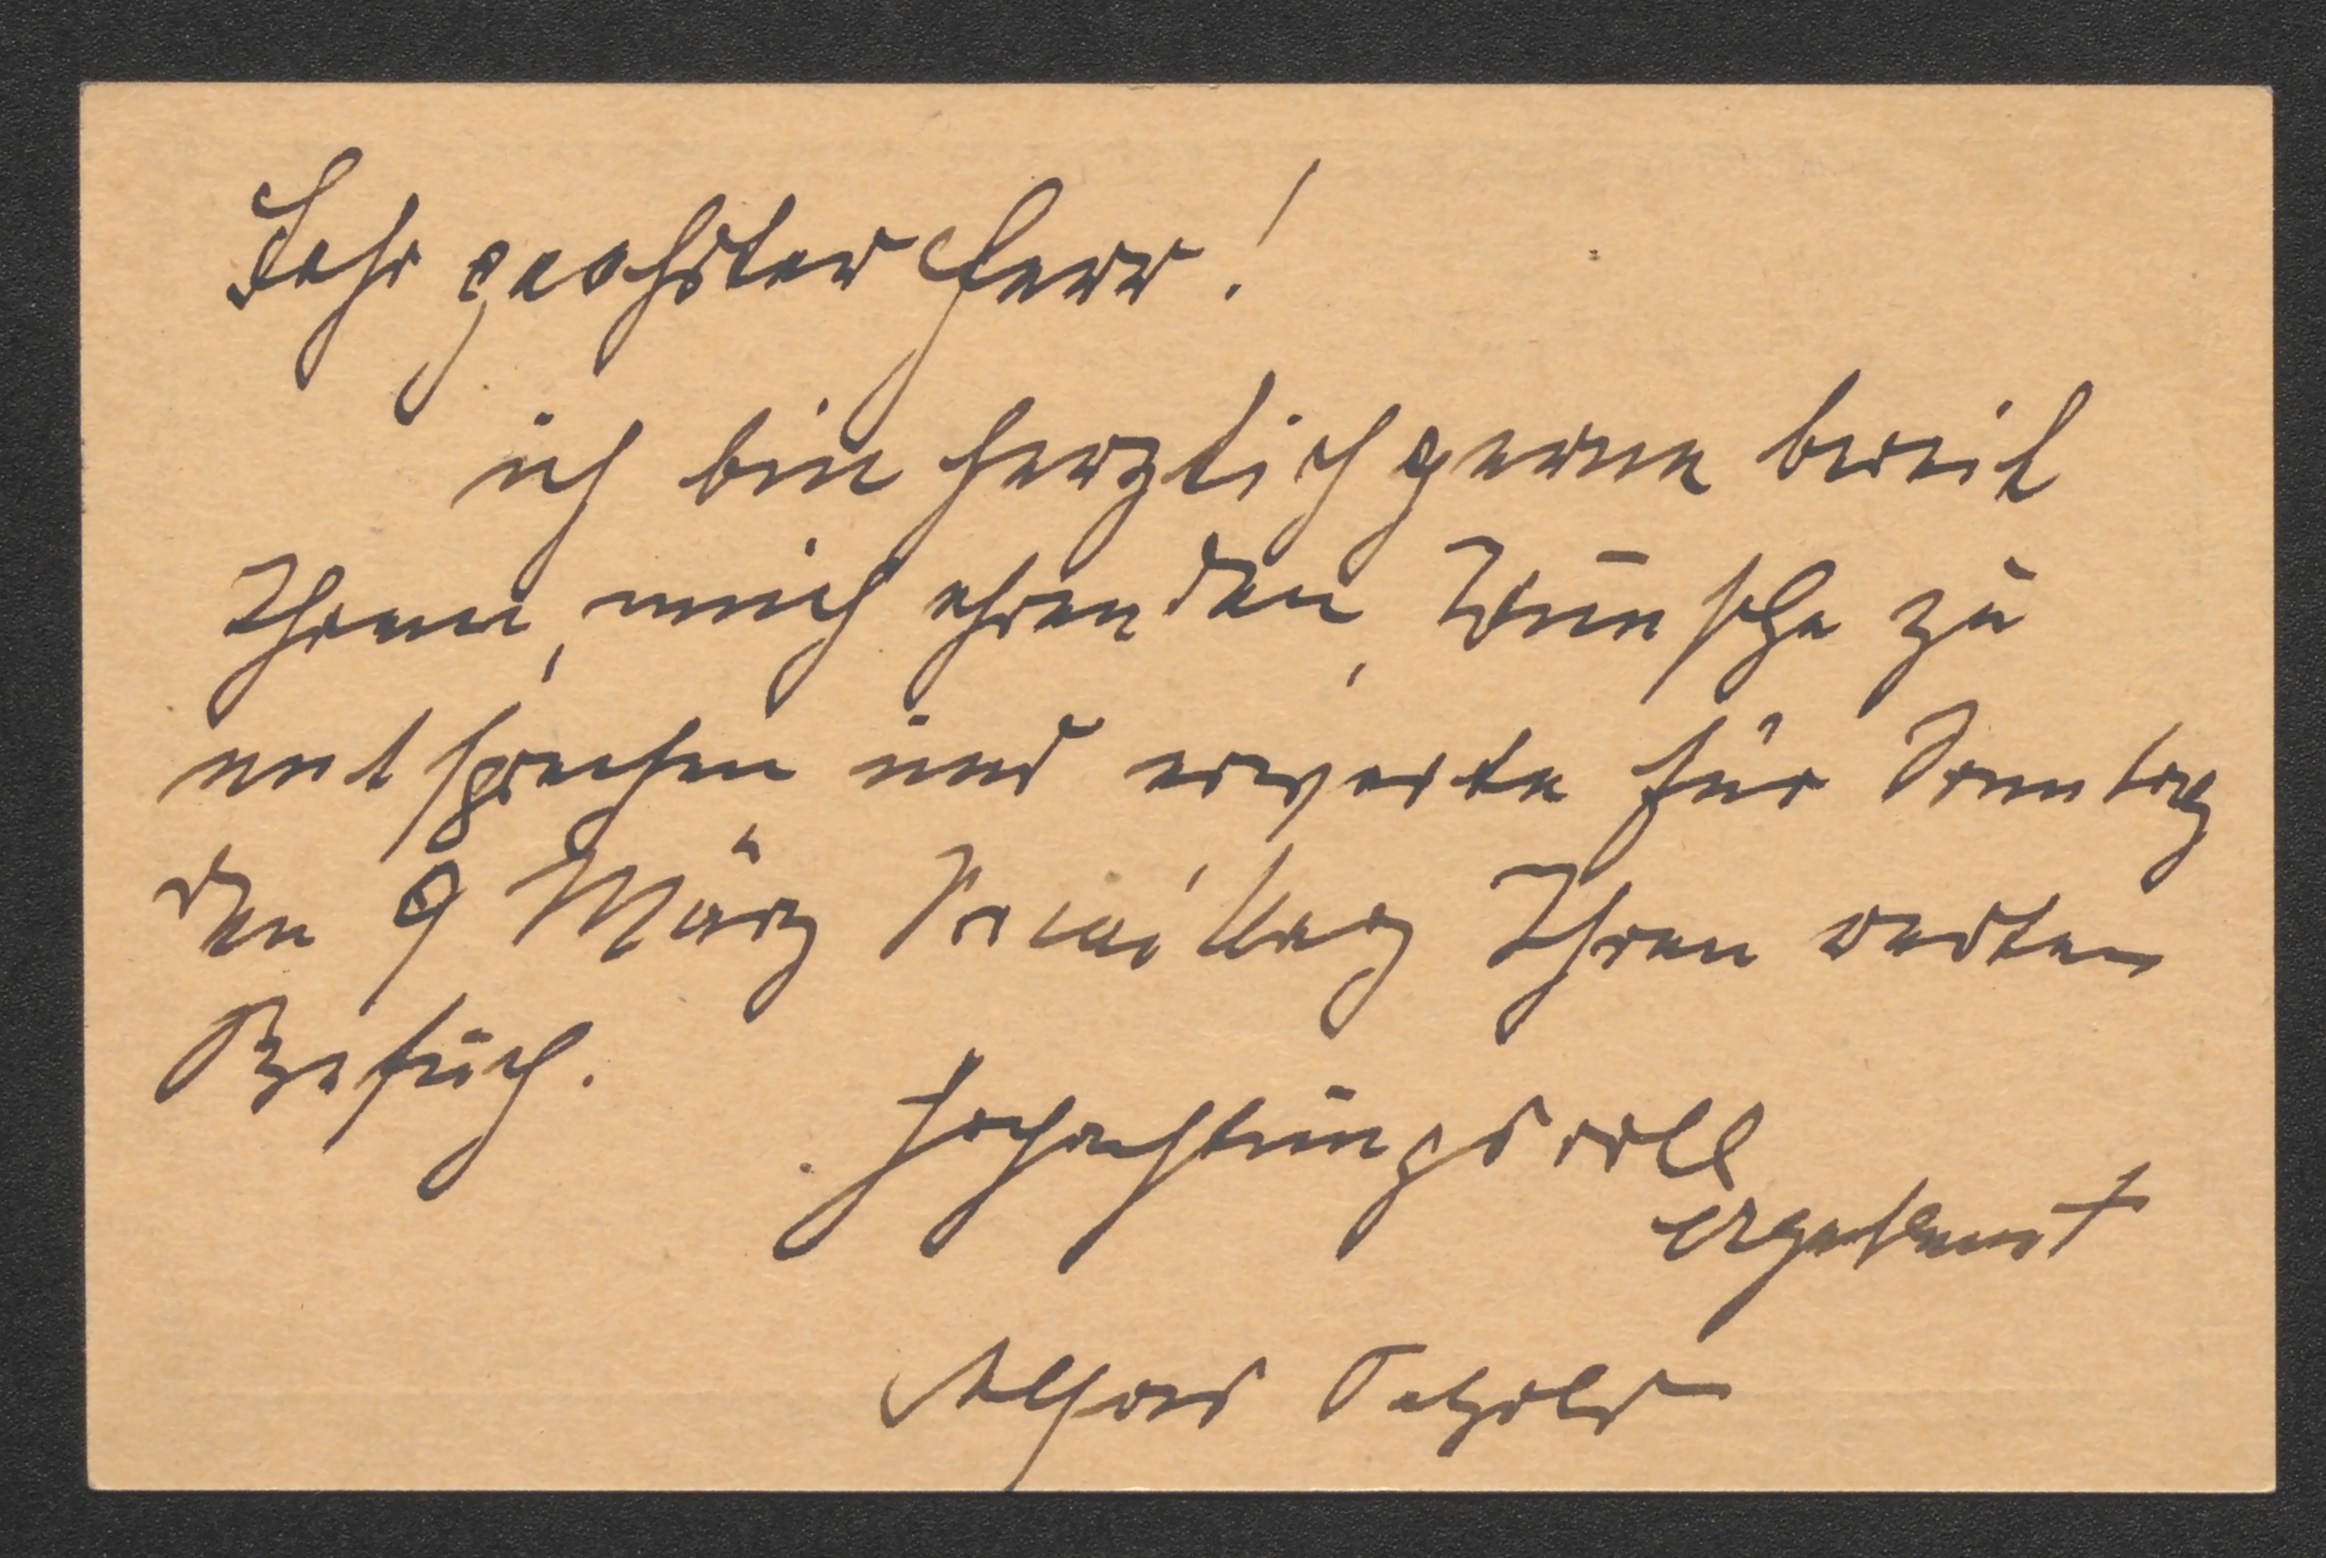 Sehr geehrter Herr!
ich bin herzlich gerne bereit
Ihrem, mich ehrenden, Wunsche zu
entsprechen und erwarte für Sonntag
den 9 März Vormittag Ihren werten
Besuch.
Hochachtungsvoll
ergebenst
Alfons Petzold